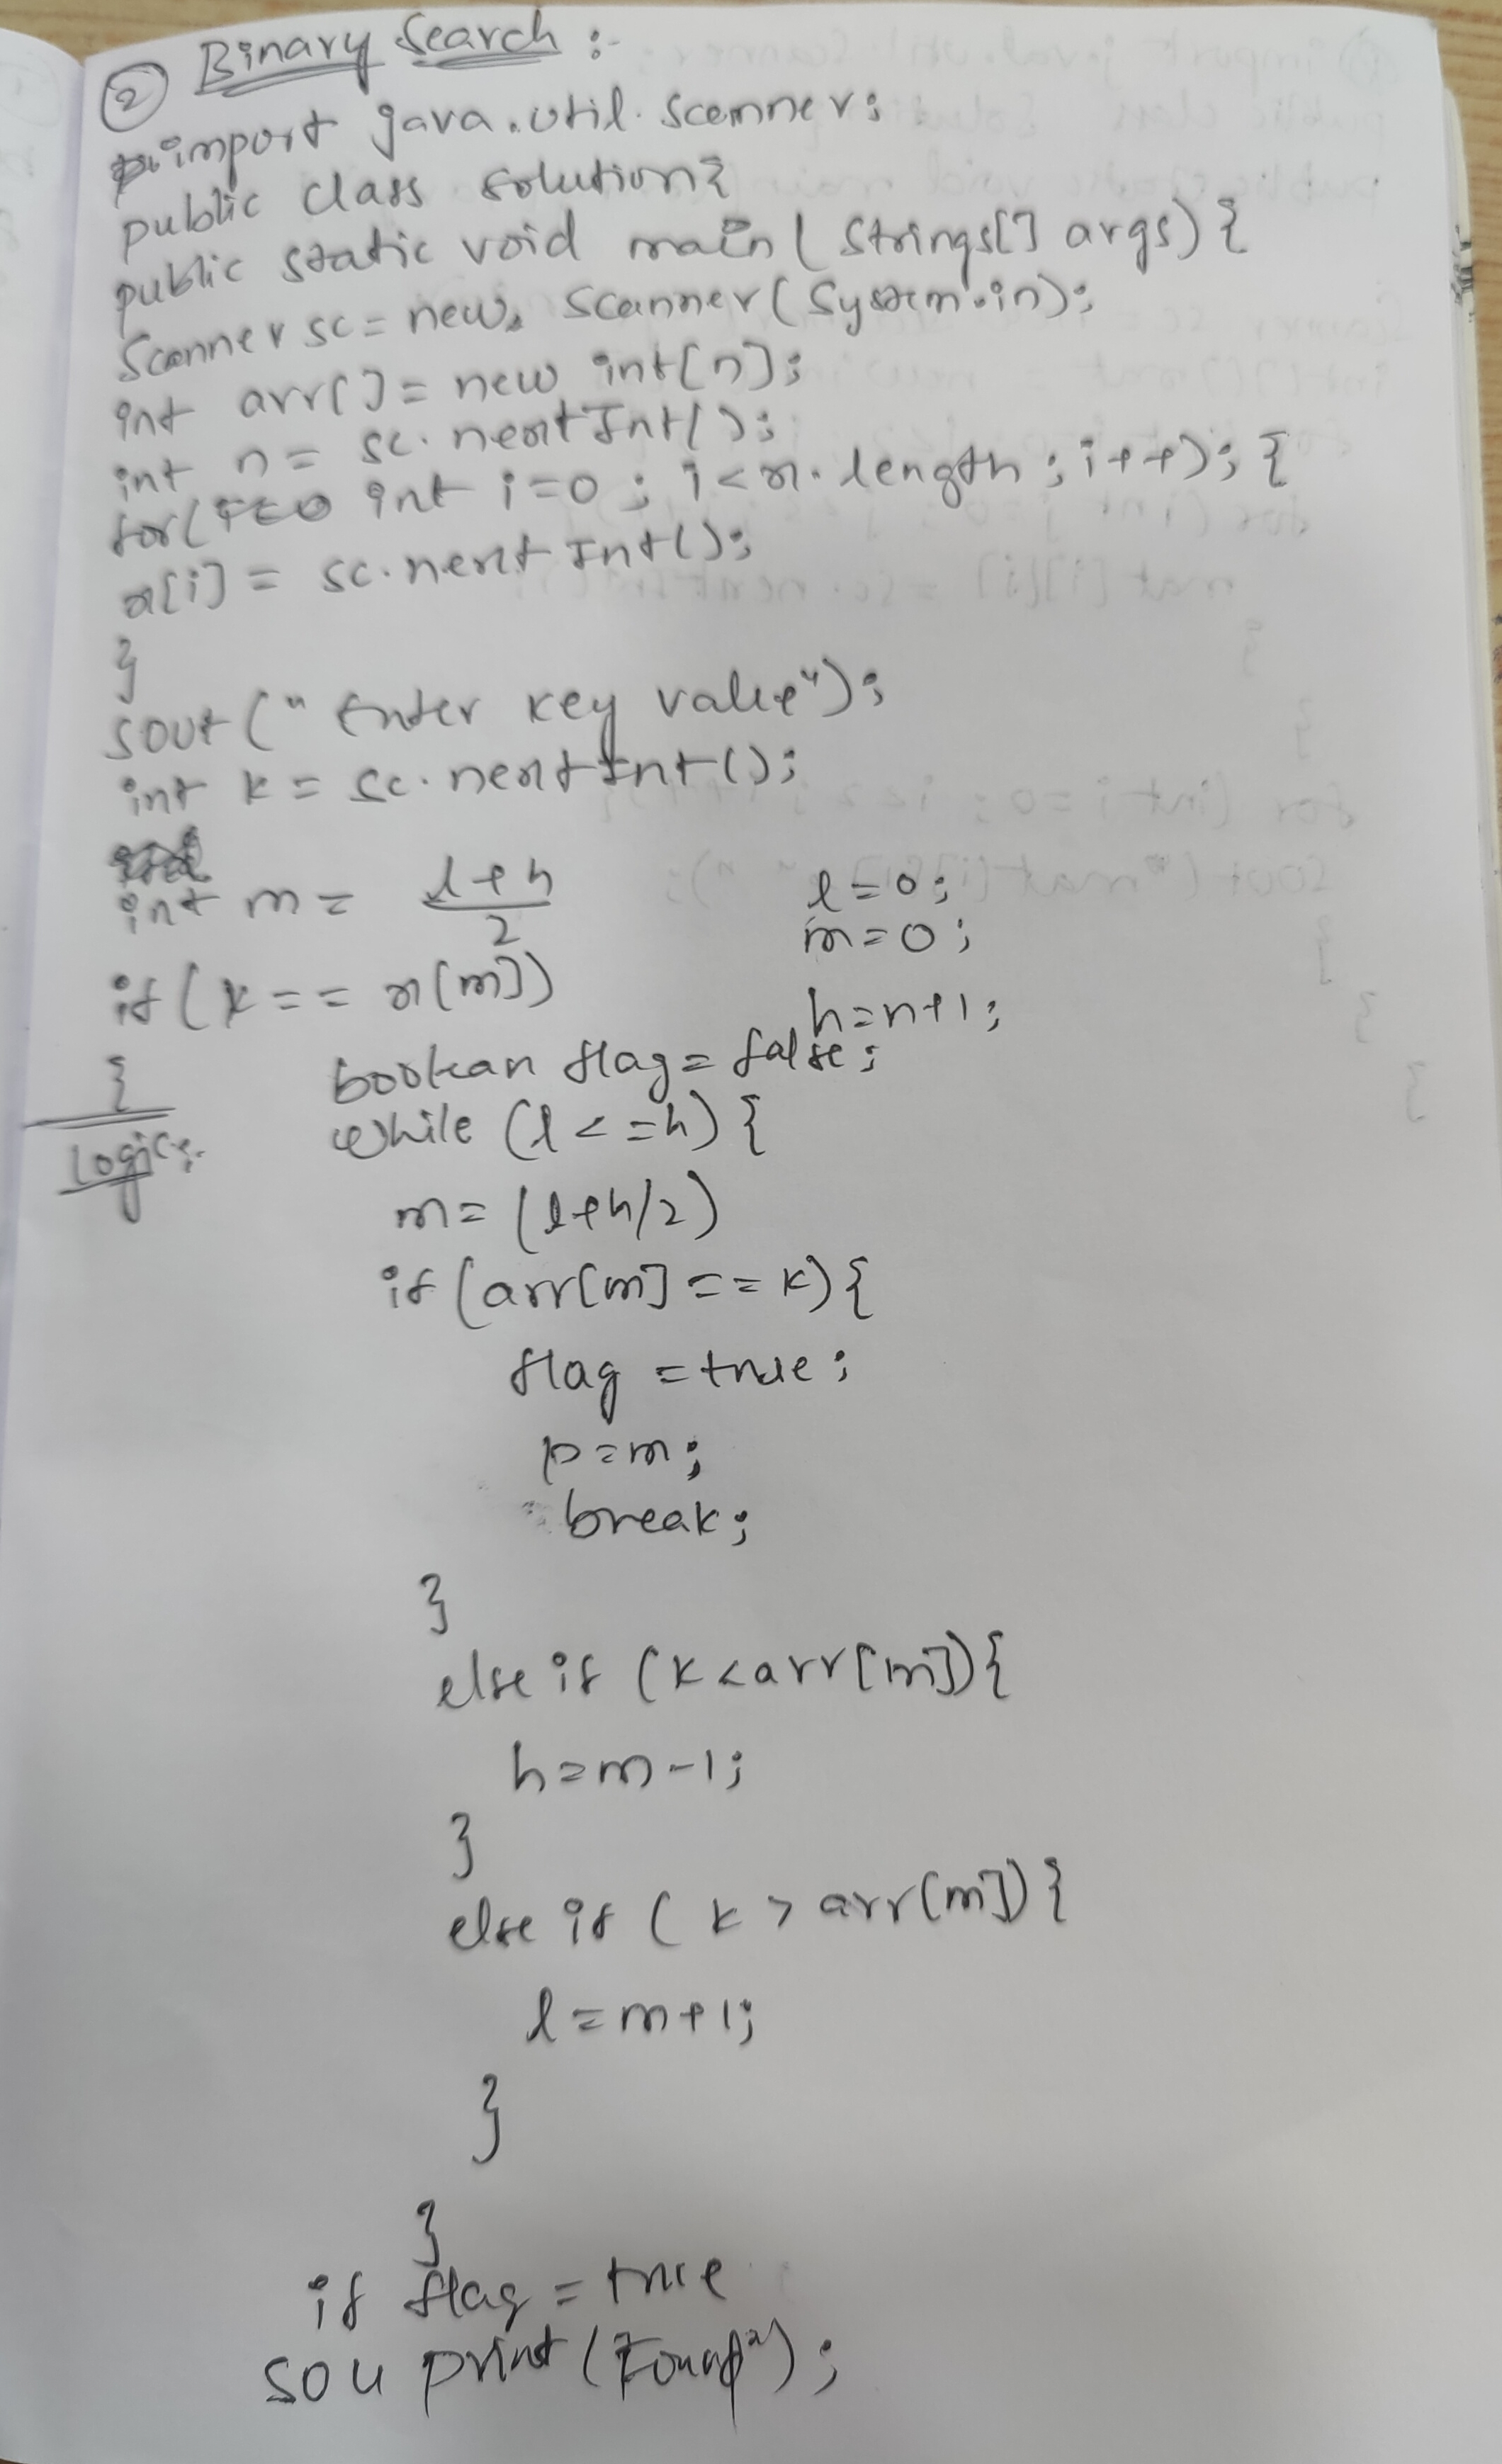 ② Binary Search :-
import java.util.Scanner;
public class solution{
public static void main(Strings[] args){
Scanner sc = new Scanner(System.in);
int arr[] = new int[n];
int n = sc.nextInt();
for( int i=0; i<x.length; i++); {
x[i] = sc.nextInt();
}
sout("Enter key value");
int k = sc.nextInt();
int m = l+h/2
l=0;
m=0;
if(k == x[m])
h=n+1;
{
boolean flag = false;
while (l<=h){
Logic:-
m=(l+h/2)
if(arr[m]==k){
flag = true;
p=m;
break;
}
else if (k<arr[m]){
h=m-1;
}
else if (k>arr[m]){
l=m+1;
}
}
if flag = true
sou print(Found");